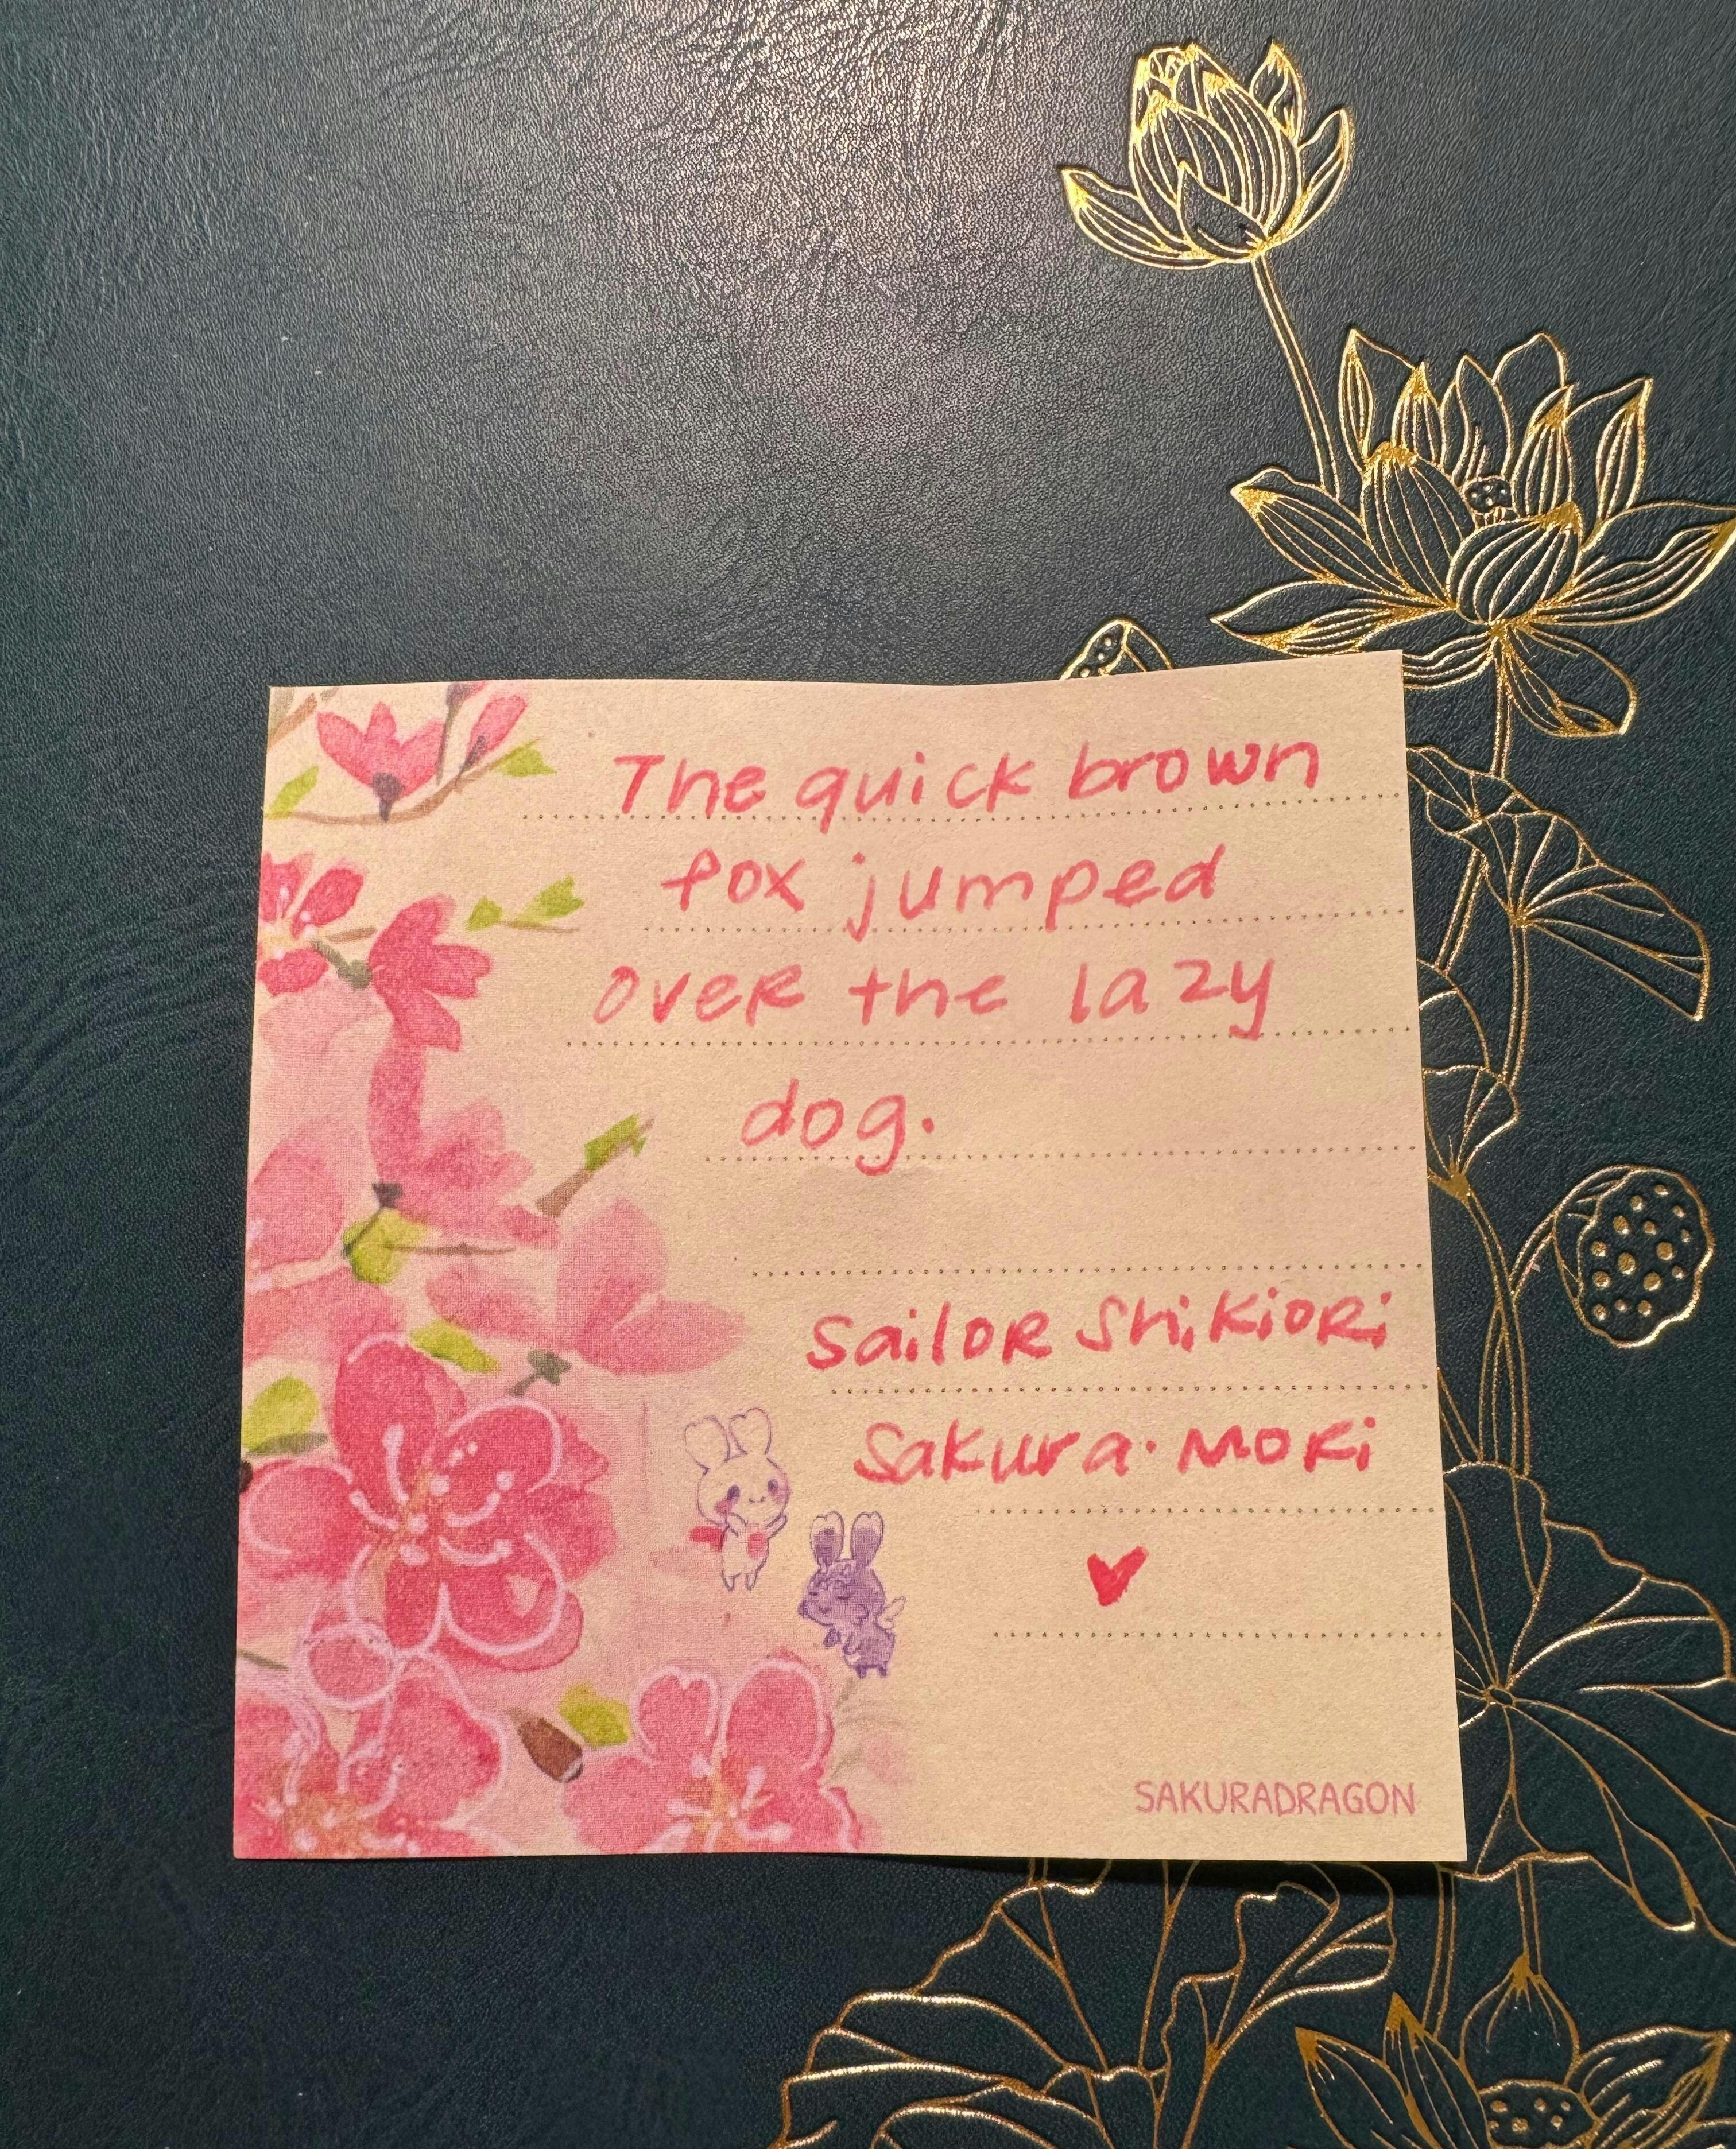 The quick brown
fox jumped
over the lazy
dog.
Sailor Shikiori
Sakura · Mori
♥
SAKURADRAGON